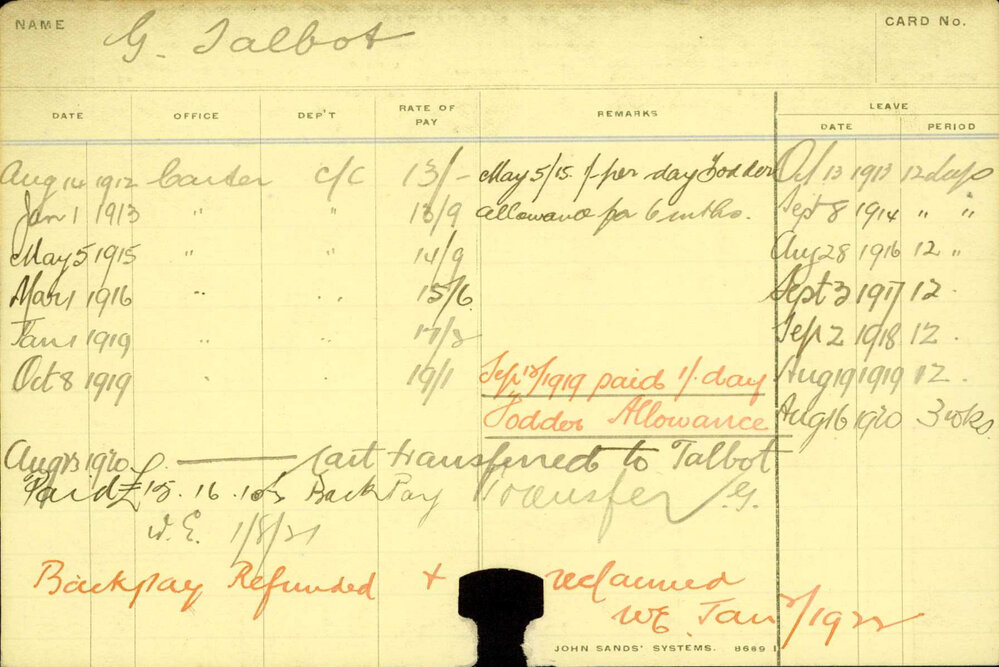 NAME G. Talbot CARD No.
DATE OFFICE DEP'T RATE OF PAY REMARKS LEAVE
DATE PERIOD
Aug 14 1912 Carter C/C 13/- May 5/15. 1/- per day Fodder Oct 13 1913 12 days
Jan 1 1913 " " 13/9 allowance for 6 mths. Sept 8 1914 " "
May 5 1915 " " 14/9 Aug 28 1916 12 "
Mar 1 1916 " " 15/6 Sept 3 1917 12 "
Jan 1 1919 " " 17/3 Sep 2 1918 12 "
Oct 8 1919 " " 19/1 Sep 1919 paid 1/- day Aug 19 1919 12 "
Fodder Allowance Aug 16 1920 3 wks.
Aug 1920 Cart transferred to Talbot
Paid £ 16. Back Pay Transfer G.
W.E. 1/8/21
Backpay Refunded + reclaimed
WE. Jan /1922
JOHN SANDS' SYSTEMS. 8689